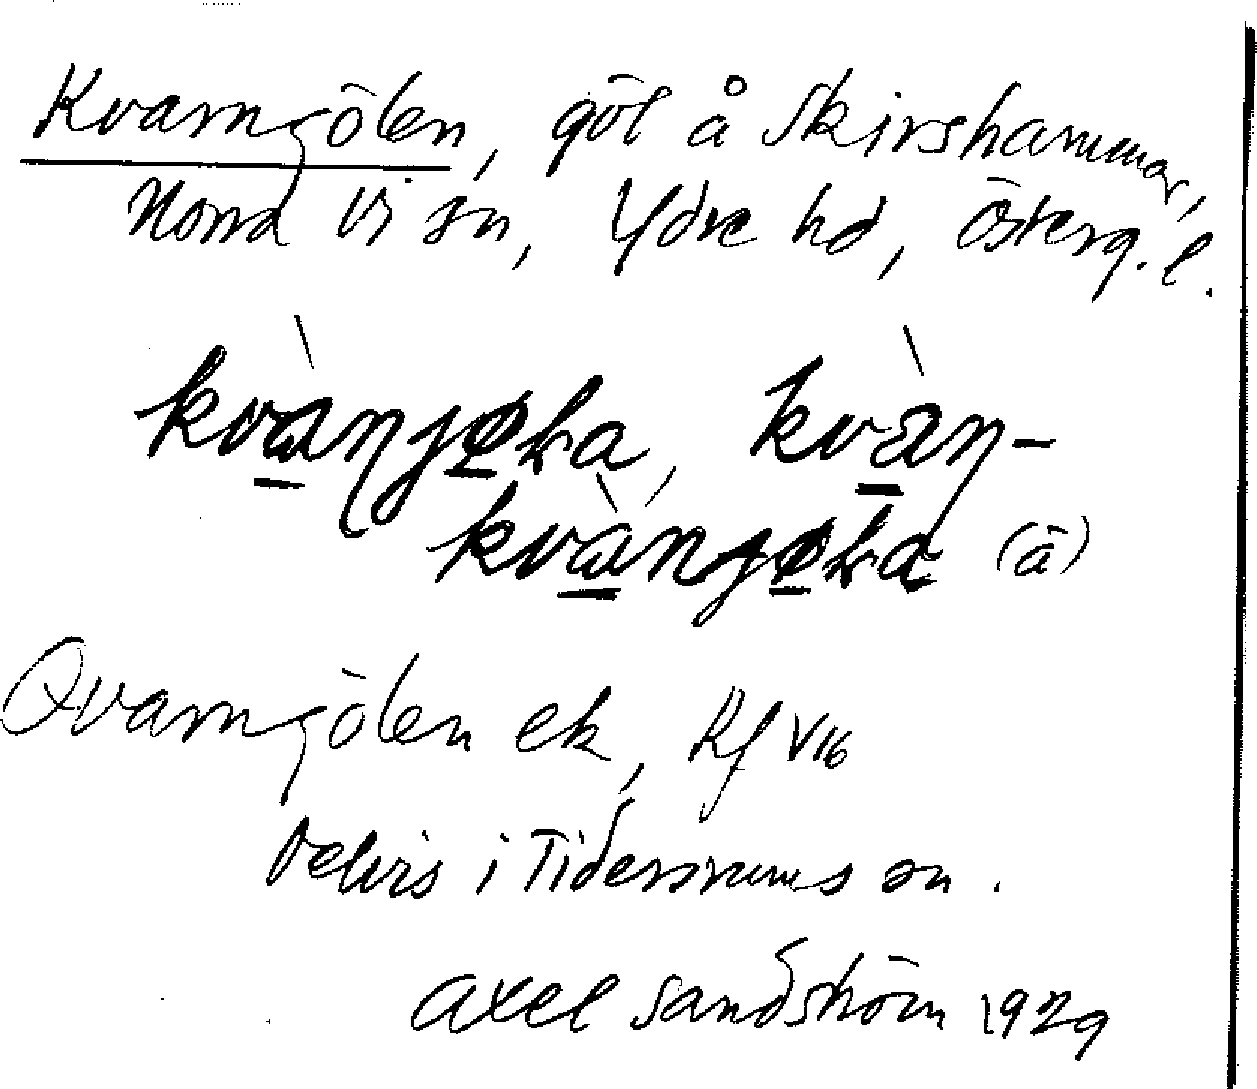 Kvarngölen, göl å Skirshammar,
Norra Vi sn, Ydre hd, Österg. l.
kvàŋjøⱡa, kvàŋ-
kvànjøⱡa (ā)
Qvarngölen ek, Rf V16
Delvis i Tidersrums sn.
Axel Sandström 1929